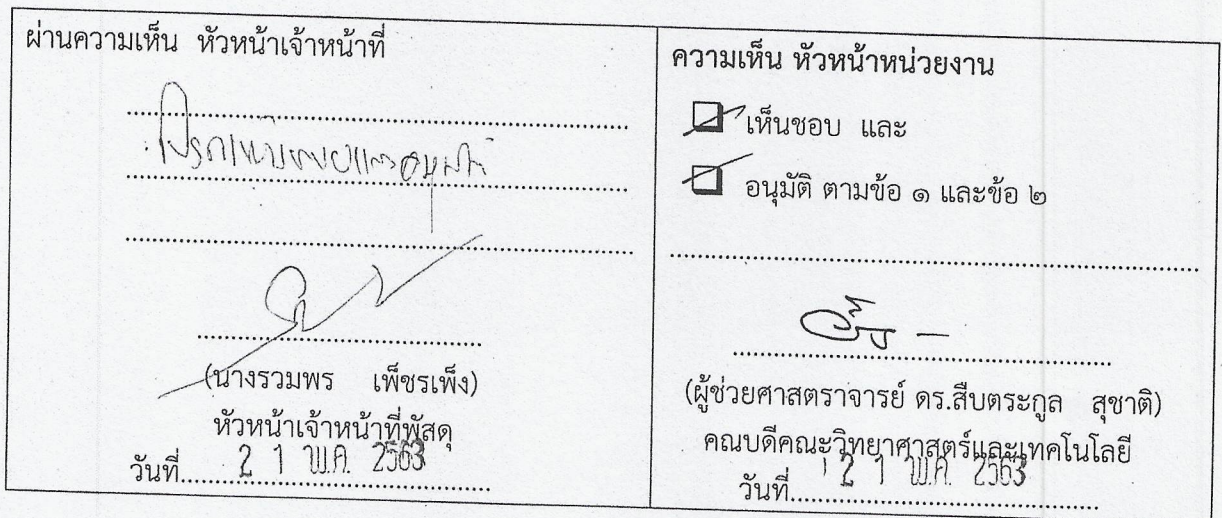 ผ่านความเห็น หัวหน้าเจ้าหน้าที่
โปรดเห็นชอบและอนุมัติ
(นางรวมพร เพ็ชรเพ็ง)
หัวหน้าเจ้าหน้าที่พัสดุ
วันที่ 2 1 พ.ค. 2563
ความเห็น หัวหน้าหน่วยงาน
เห็นชอบ และ
อนุมัติ ตามข้อ ๑ และข้อ ๒
(ผู้ช่วยศาสตราจารย์ ดร.สืบตระกูล สุชาติ)
คณบดีคณะวิทยาศาสตร์และเทคโนโลยี
วันที่ 2 1 พ.ค. 2563